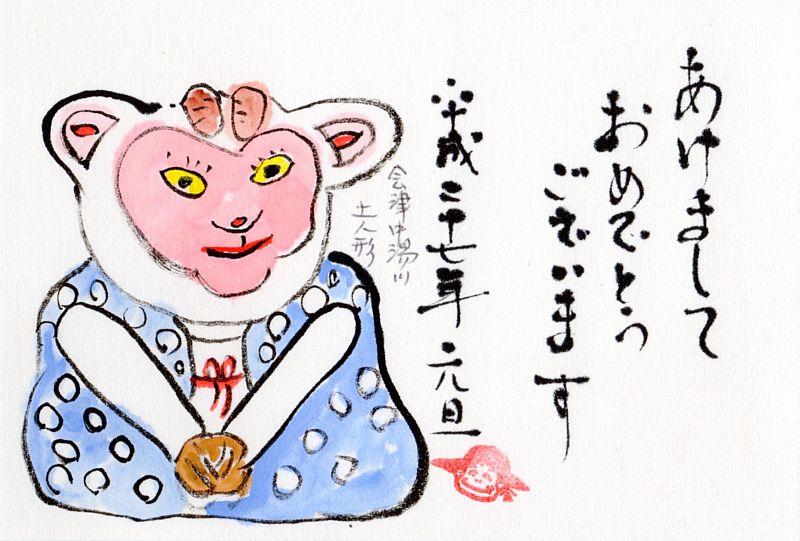 あけまして
おめでとう
ございます
平成二十七年 元旦
会津中湯川
土人形